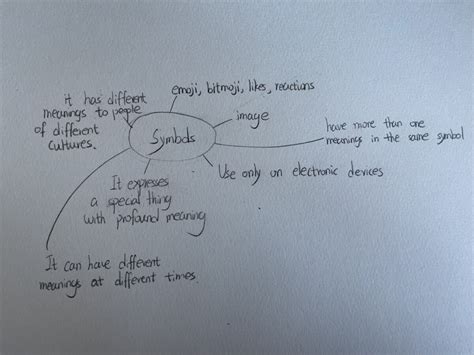 emoji, bitmoji, likes, reactions
it has different
meanings to people
of different
cultures.
image
Symbols
have more than one
meanings in the same symbol
Use only on electronic devices
It expresses
a special thing
with profound meaning
It can have different
meanings at different times.